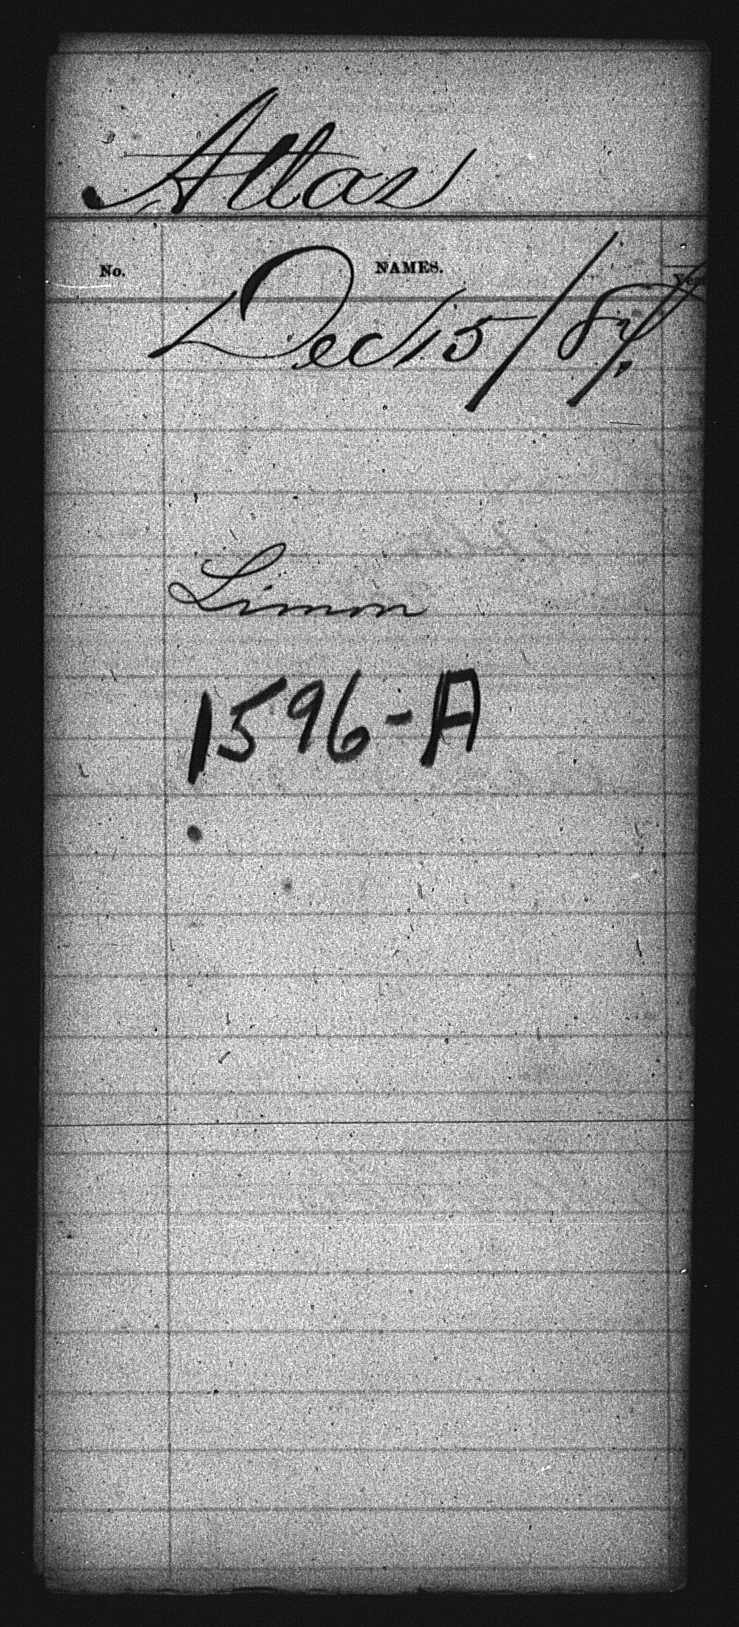 Atlas
No. NAMES.
Dec 15/87.
Limon
1596-A